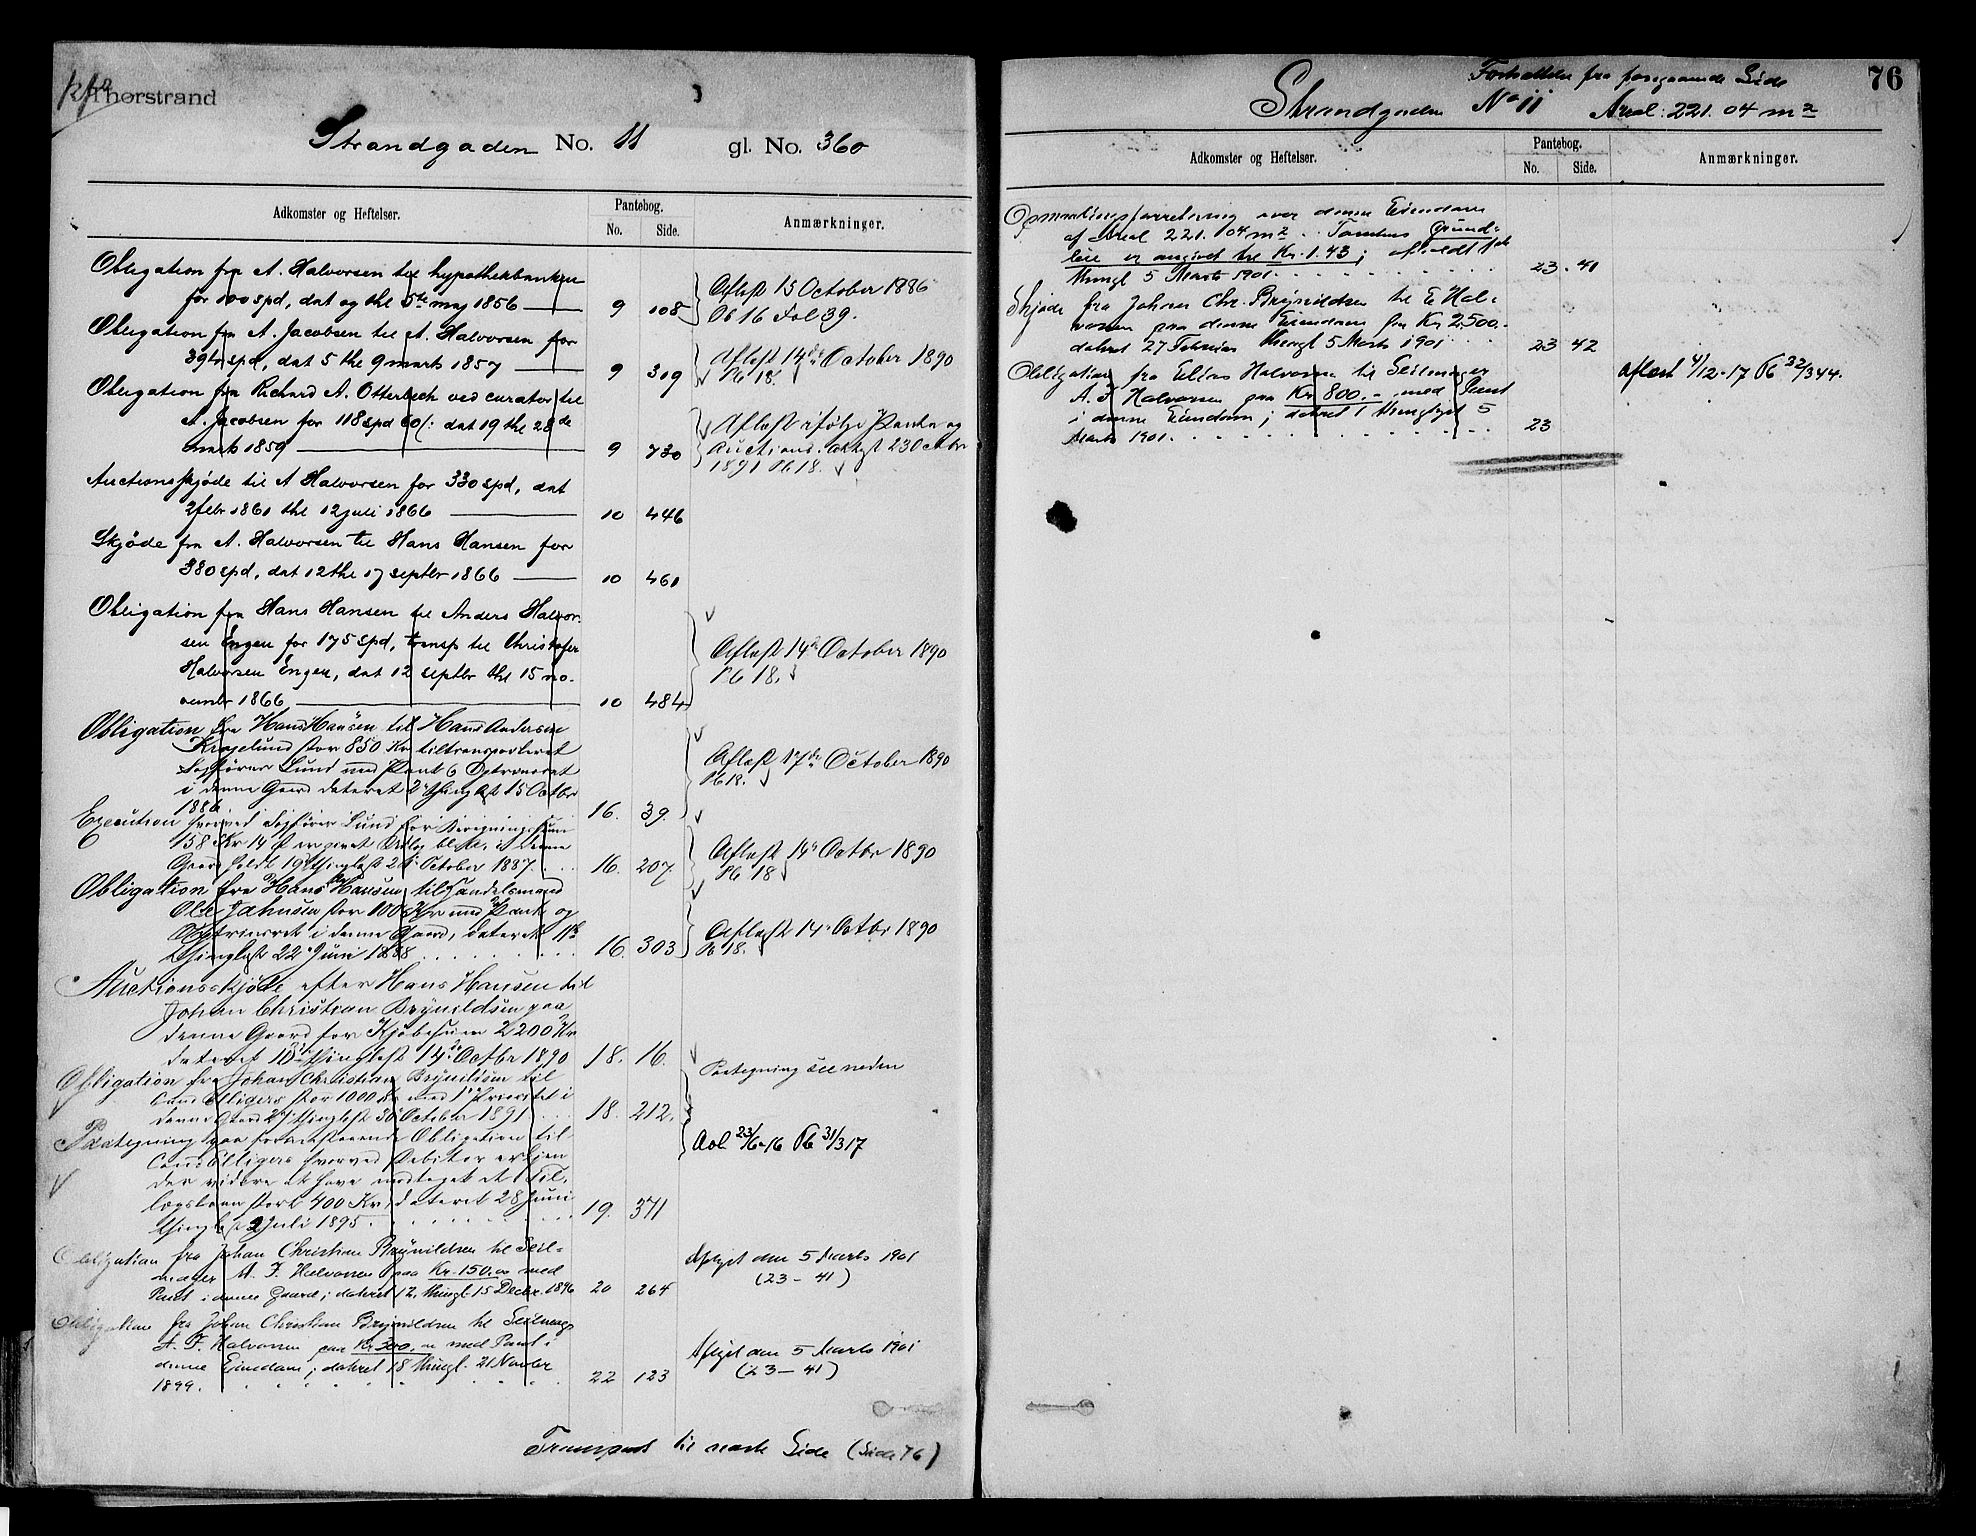 Thorstrand
Strandgaden No. 11 gl. No. 360
Adkomster og Heftelser. Pantebog. Anmærkninger.
No. Side.
Obligation fra A. Halvorsen til hypothekbanken
for 100 spd, dat og thl 5te maj 1856 9 108 Aflæst 15 October 1886
Pb 16 Fol 39.
Obligation fra A. Jacobsen til A. Halvorsen for
39 spd, dat 5 thl 9 marts 1857 9 319 Aflæst 14de October 1890
Pb 18.
Obligation fra Richard A. Otterbech ved curator til
A. Jacobsen for 118 spd 60/: dat 19 thl 28de
marts 1859 9 730 Aflæst ifølge Pante og
Auctions 23 Octbr
1891 Pb 18.
Auctionsskjøde til A Halvorsen for 330 spd, dat
2 febr 1861 thl 12 juli 1866 10 446
Skjøde fra A. Halvorsen til Hans Hansen for
380 spd, dat 12 thl 17 septbr 1866 10 461
Obligation fra Hans Hansen til Anders Halvor-
sen Engen for 175 spd, transp til Christofer
Halvorsen Engen, dat 12 septbr thl 15 no-
vembr 1866 10 484 Aflæst 14de October 1890
Pb 18.
Obligation fra Hans Hansen til Hans Andersen
Krogelund stor 850 Kr tiltransporteret
Sagfører Lund med Pant & Opt
i denne Gaard dateret 2 thinglæst 15 Octbr
1886 16. 39. Aflæst 17de October 1890
Pb 18.
Execution hvorved Sagfører Lund for
138 Kr 14 Ø er givet Udlæg bl. a. i denne
Gaard holdt 19 thinglæst 21 October 1887 16. 207. Aflæst 14de Octbr 1890
Pb 18
Obligation fra Hans Hansen til Handelsmand
Ole Johnsen stor 100 Kr med Pant og
i denne Gaard, dateret 11te
thinglæst 22de Juni 1888 16. 303 Aflæst 14de Octbr 1890
Pb 18.
Auctionsskjøde efter Hans Hansen til
Johan Christian Brynildsen paa
denne Gaard for Kjøbesum 2200 Kr
dateret 10de thinglæst 14de Octbr 1890 18. 16.
Obligation fra Johan Christian Brynildsen til
Cand Elligers stor 1000 Kr med 1ste Prioritet i
denne Gaard 27 thinglæst 30 October 1891 18. 212. Paategning see neden
Paategning paa foranstaaende Obligation til
Cand Elligers hvorved Debitor erkjen
der videre at have modtaget et Til-
lægslaan stort 400 Kr, dateret 28 Juni
thingl. 2 Juli 1895. 19. 371 Avl. 23/6-16 Pb 31/317
Obligation fra Johan Christian Brynildsen til Seil-
mager A. F. Halvorsen paa Kr. 150.00 med
Pant i denne Gaard; dateret 12, thingl. 15 Decbr. 1896 20 264 Aflyst den 5 Marts 1901
(23 – 41)
Obligation fra Johan Christian Brynildsen til Seilmager
A. F. Halvorsen paa Kr. 300,00 med Pant i
denne Eiendom; dateret 18 thingl. 21 Novbr
1899. 22 123 Aflyst den 5 Marts 1901
(23 – 41)
Transport til næste Side (Side 76)
Fortsættelse fra foregaaende Side 76
Strandgaden No 11 Areal: 221.04 m2
Adkomster og Heftelser. Pantebog. Anmærkninger.
No. Side.
Opmaalingsforretning over denne Eiendom
af Areal 221.04 m2. Tomtens Grund-
leie er angivet til Kr. 1.43; afholdt
thingl 5 Marts 1901 23 41
Skjøde fra Johan Chr. Brynildsen til E Hal-
vorsen paa denne Eiendom for Kr 2,500.-
dateret 27 Februar thingl 5 Marts 1901 23 42
Obligation fra Elias Halvorsen til Seilmager
A. F Halvorsen paa Kr. 800,- med Pant
i denne Eiendom; dateret 1 thinglyst 5
Marts 1901. 23 aflæst 4/12-17 Pb 32/344.